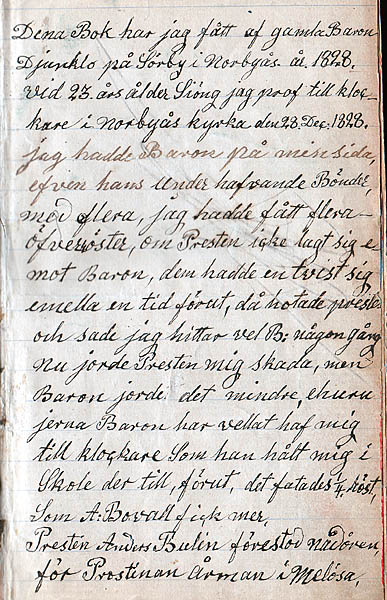 Dena Bok har jag fått af gamla Baron
Djurklo på Sörby i Norbyås. år. 1828.
vid 23. års ålder Siöng jag prof till kloc-
kare i Norbyås kyrka den 28. Dec. 1828.
jag hadde Baron på min sida,
efven hans under hafvande Bönder,
med flera, jag hadde fått flera
öfveröster, om Presten icke lagt sig e
mot Baron, dem hadde en tvist sig
emella en tid förut, då hotade preste
och sade jag hittar vel B: någon gång
nu jorde Presten mig skada, men
Baron jorde det mindre, ehuru
jerna Baron har vellat haf mig
till klockare Som han hålt mig i
Skole der till, förut, det fatades ¼ röst,
Som A: Bovall fick mer,
Presten Anders Bulin förestod nådåren,
för Prostinan Årman i Melösa,